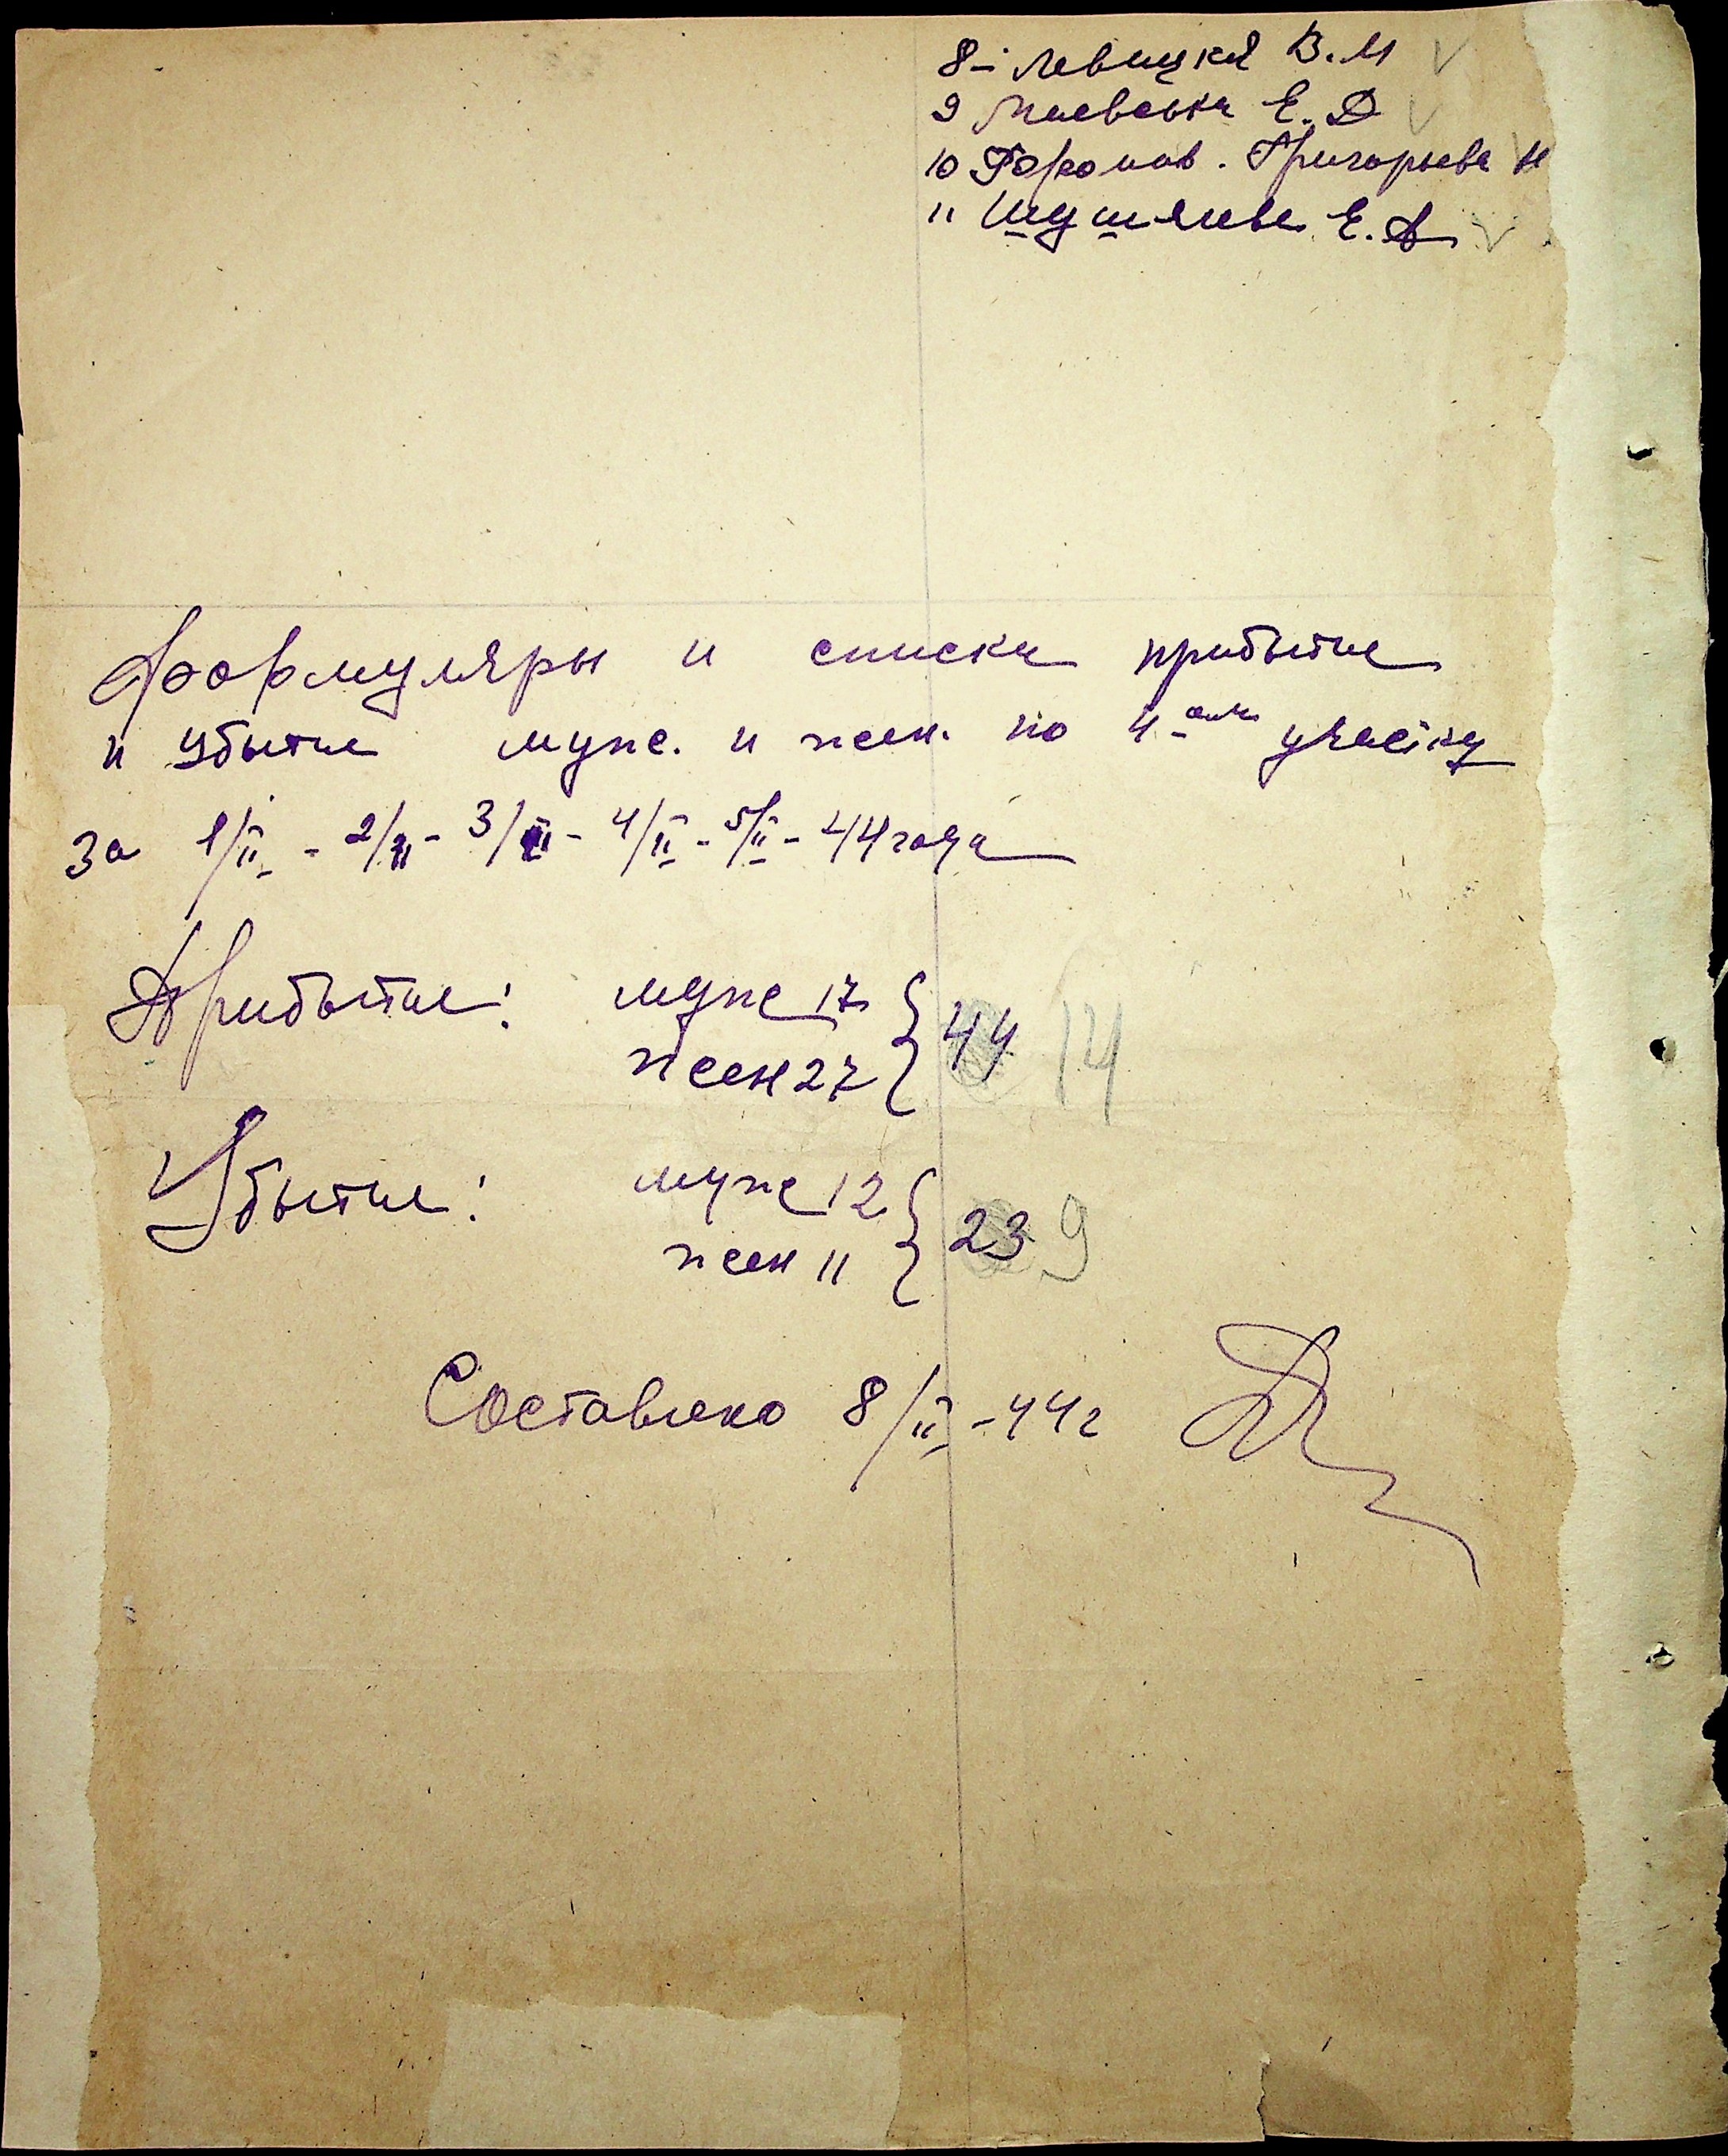 8- Левицкий В. М
9 Маевська Е. Д
10 Григорьева Н
11 Шушляева Е. А
Формуляры и списки прибытие
и убытие муж. и жен. по 4-ому участку
За 1/II - 2/II - 3/II - 4/II - 5/II - 44 года
Прибытие: муж 17 } 44 14
жен 27
Убытие: муж 12 } 23 9
жен 11
Составлено 8/II - 44 г